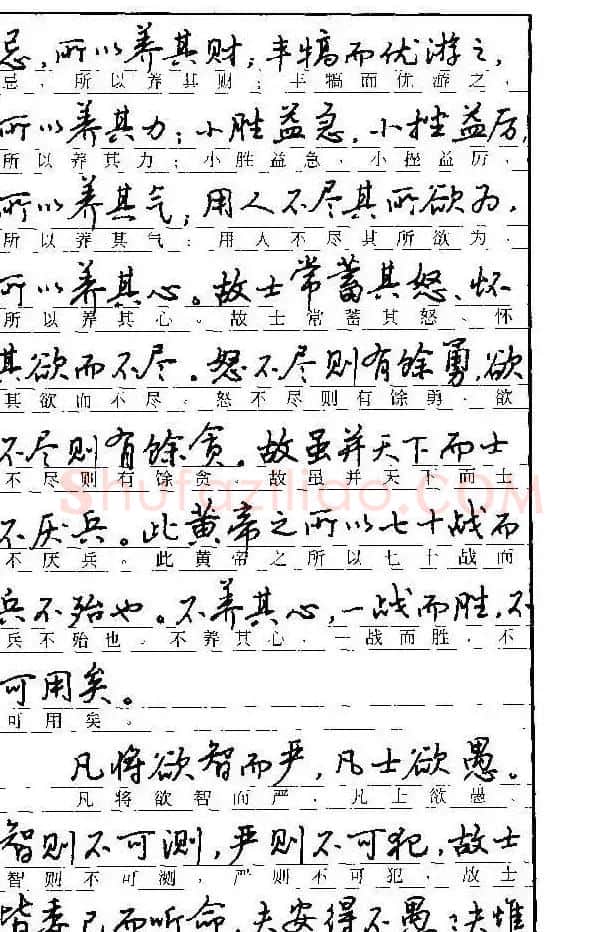 忌,所以养其财;丰犒而优游之,
忌,所以养其财;丰犒而优游之,
所以养其力;小胜益急,小挫益厉,
所以养其力;小胜益急,小挫益厉,
所以养其气;用人不尽其所欲为,
所以养其气;用人不尽其所欲为,
所以养其心。故士常蓄其怒、怀
所以养其心。故士常蓄其怒、怀
其欲而不尽。怒不尽则有馀勇,欲
其欲而不尽。怒不尽则有馀勇,欲
不尽则有馀贪。故虽并天下而士
不尽则有馀贪。故虽并天下而士
Shufaziliao.COM
不厌兵。此黄帝之所以七十战而
不厌兵。此黄帝之所以七十战而
兵不殆也。不养其心,一战而胜,不
兵不殆也。不养其心,一战而胜,不
可用矣。
可用矣。
凡将欲智而严,凡士欲愚。
凡将欲智而严,凡士欲愚。
智则不可测,严则不可犯,故士
智则不可测,严则不可犯,故士
皆委己而听命,夫安得不愚?夫惟